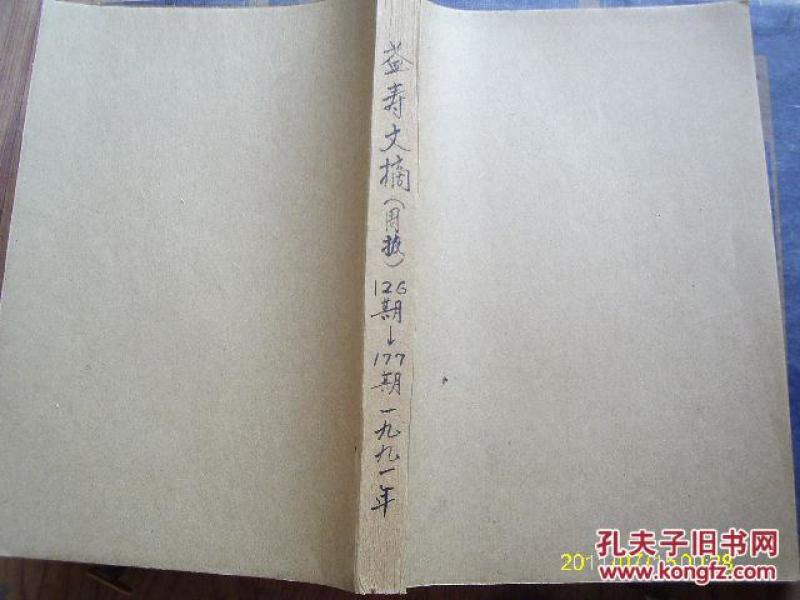 益寿文摘（周报）126期↓177期一九九一年
孔夫子旧书网
www.kongfz.com